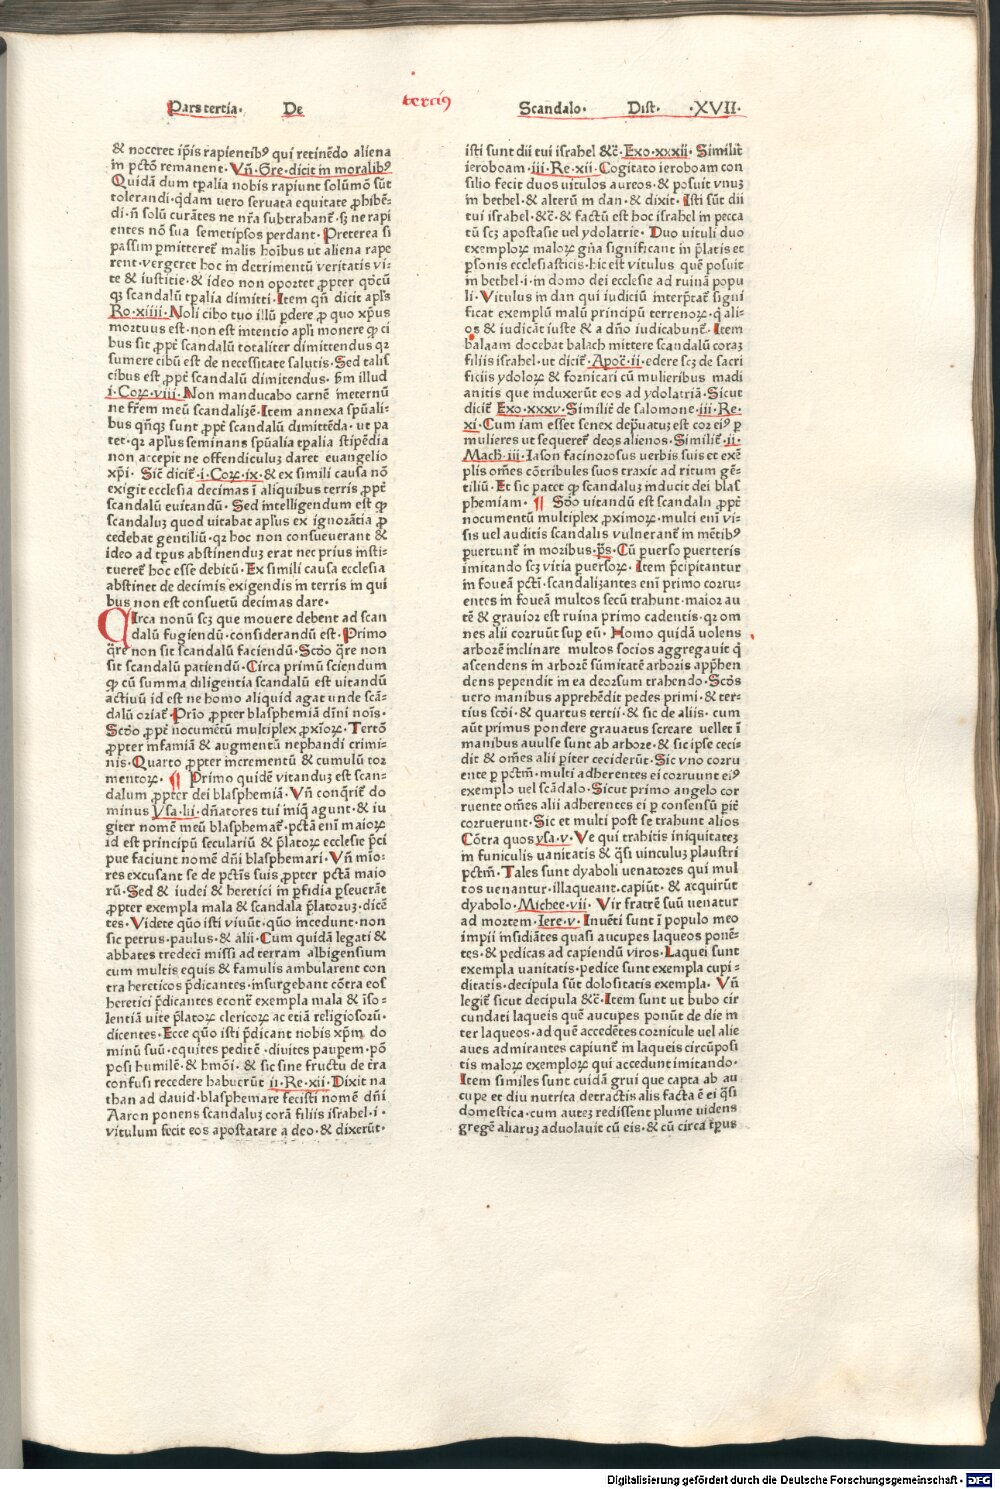 Pars tertia· De terciꝰ Scandalo· Dist· ·XVII·
& noceret ip̄is rapientibꝰ qui retinēdo aliena
in pctō remanent· Vn̄· Gre· dicit in moralibꝰ
Quidā dum tp̄alia nobis rapiunt solūmō sūt
tolerandi· q̄dam uero seruata equitate ꝓhibē/
di· n̄ solū curātes ne nr̄a subtrahant᷑· sꝫ ne rapi
entes nō sua semetipsos perdant· Preterea si
passim ꝑmitteret᷑ malis hoībus ut aliena rape
rent· vergeret hoc in detrimentū veritatis vi-
te & iustitie· & ideo non oportet ꝓpter qd̄cū
qꝫ scandalū tp̄alia dimitti· Item qn̄ dicit apl̄s
Ro· xiiii· Noli cibo tuo illū ꝑdere ꝓ quo xp̄us
mortuus est· non est intentio apl̄i monere ꝙ ci
bus sit ꝓpt᷑ scandalū totaliter dimittendus qꝛ
sumere cibū est de necessitate salutis· Sed talis
cibus est ꝓpt᷑ scandalū dimitendus· s̄m illud
i·Coꝝ·viii· Non manducabo carnē ineternū
ne fr̄em meū scandalizē· Item annexa spūali-
bus qn̄qꝫ sunt ꝓpt᷑ scandalū dimittēda· ut pa
tet· qꝛ apl̄us seminans spūalia tp̄alia stipēdia
non accepit ne offendiculuꝫ daret euangelio
xp̄i· Sic̄ dicit᷑·i·Coꝝ·ix·& ex simili causa nō
exigit ecclesia decimas ī aliquibus terris ꝓpt᷑
scandalū euitandū· Sed intelligendum est ꝙ
scandaluꝫ quod vitabat apl̄us ex ignorātia ꝓ
cedebat gentiliū· qꝛ hoc non consueuerant &
ideo ad tp̄us abstinenduꝫ erat nec prius insti-
tueret᷑ hoc esse debitū· Ex simili causa ecclesia
abstinet de decimis exigendis in terris in qui
bus non est consuetū decimas dare·
CIrca nonū scꝫ que mouere debent ad scan
dalū fugiendū· considerandū est· Primo
q̄re non sit scandalū faciendū· Scd̄o q̄re non
sit scandalū patiendū· Circa primū sciendum
ꝙ cū summa diligentia scandalū est uitandū
actiuū id est ne homo aliquid agat unde scā-
dalū oriat᷑· Prīo ꝓpter blasphemiā diīni noīs·
Scd̄o ꝓpt᷑ nocumētū multiplex ꝓxīoꝝ· Tertō
ꝓpter infamiā & augmentū nephandi crimi-
nis· Quarto ꝓpter incrementū & cumulū tor
mentoꝝ· ¶ Primo quidē vitanduꝫ est scan-
dalum ꝓpter dei blasphemiā· Vn̄ conq̄rit᷑ do
minus Ysa·lii· dn̄atores tui iniq̄ agunt· & iu
giter nomē meū blasphemat᷑· pctā eni maioꝝ
id est principū seculariū & p̄latoꝝ ecclesie p̄ci
pue faciunt nomē dn̄i blasphemari· Vn̄ mīo-
res excusant se de pctīs suis ꝓpter pctā maio
rū· Sed & iudei & heretici in ꝑfidia ꝑseuerāt
ꝓpter exempla mala & scandala p̄latoꝝ· dicē
tes· Videte quō isti viuūt· quō incedunt· non
sic petrus· paulus· & alii· Cum quidā legati &
abbates tredeci missi ad terram albigensium
cum multis equis & famulis ambularent con
tra hereticos p̄dicantes· insurgebant cōtra eos
heretici p̄dicantes econt᷑ exempla mala & īso-
lentiā uite p̄latoꝝ clericoꝝ ac etiā religiosorū·
dicentes· Ecce quō isti p̄dicant nobis xp̄m do
minū suū· equites peditē· diuites pauꝑem· pō
posi humilē· & hmōi· & sic sine fructu de tra
confusi recedere habuerūt ii·Re·xii· Dixit na
than ad dauid· blasphemare fecisti nomē dn̄i
Aaron ponens scandaluꝫ corā filiis israhel· i·
vitulum fecit eos apostatare a deo· & dixerūt·
isti sunt dii tui israhel &c̄· Exo·xxxii· Similit᷑
ieroboam· iii·Re·xii· Cogitato ieroboam con
silio fecit duos vitulos aureos· & posuit vnuꝫ
in bethel· & alterū in dan· & dixit· Isti sūt dii
tui israhel· &c̄· & factū est hoc israhel in pecca
tū scꝫ apostasie uel ydolatrie· Duo uituli duo
exemploꝝ maloꝝ gn̄a significant in p̄latis et
ꝑsonis ecclesiasticis· hic est vitulus quē posuit
in bethel· i· in domo dei ecclesie ad ruinā popu
li· Vitulus in dan qui iudiciū interp̄tat᷑ signi
ficat exemplū malū principū terrenoꝝ· q̄ ali-
os & iudicāt iuste & a dn̄o iudicabunt᷑· Item
balaam docebat balach mittere scandalū coraꝫ
filiis israhel· ut dicit᷑· Apoc̄·ii· edere scꝫ de sacri
ficiis ydoloꝝ & fornicari cū mulieribus madi
anitis que induxerūt eos ad ydolatriā· Sicut
dicit᷑ Exo·xxxv· Similit᷑ de salomone· iii·Re·
xi· Cum iam esset senex dep̄uatuꝫ est cor eiꝰ ꝑ
mulieres ut sequeret᷑ deos alienos· Similit᷑· ii·
Mach·iii· Iason facinorosus uerbis suis et exē
plis om̄es cōtribules suos traxit ad ritum gē-
tiliū· Et sic patet ꝙ scandaluꝫ inducit dei blas
phemiam· ¶ Scd̄o uitandū est scandalū ꝓpt᷑
nocumentū multiplex ꝓximoꝝ· multi enī vi-
sis uel auditis scandalis vulnerant᷑ in mētibꝰ
ꝑuertunt᷑ in moribus· p̄s· Cū ꝑuerso ꝑuerteris
imitando scꝫ vitia ꝑuersoꝝ· Item p̄cipitantur
in foueā pcti· scandalizantes enī primo corru-
entes in foueā multos secū trahunt· maior au
tē & grauior est ruina primo cadentis· qꝛ om
nes alii corruūt suꝑ eū· Homo quidā uolens
arborē inclinare multos socios aggregauit q̄
ascendens in arborē sūmitatē arboris app̄hen
dens pependit in ea deorsum trahendo· Scd̄s
uero manibus apprehēdit pedes primi· & ter-
tius scd̄i· & quartus tertii· & sic de aliis· cum
aūt primus pondere grauatus screare uellet ī
manibus auulse sunt ab arbore· & sic ipse ceci-
dit & om̄es alii ꝑiter ceciderūt· Sic vno corru
ente ꝑ pctm̄· multi adherentes ei corruunt eiꝰ
exemplo uel scādalo· Sicut primo angelo cor
ruente om̄es alii adherentes ei ꝑ consensū ꝑit᷑
corruerunt· Sic et multi post se trahunt alios
Cōtra quos ysa·v· Ve qui trahitis iniquitateꝫ
in funiculis uanitatis & q̄si vinculuꝫ plaustri
pctm̄· Tales sunt dyaboli uenatores qui mul
tos uenantur· illaqueant· capiūt· & acquirūt
dyabolo· Michee·vii· Vir fratrē suū uenatur
ad mortem· Iere·v· Inuēti sunt ī populo meo
impii insidiātes quasi aucupes laqueos ponē-
tes· & pedicas ad capiendū viros· Laquei sunt
exempla uanitatis· pedice sunt exempla cupi-
ditatis· decipula sūt dolositatis exempla· Vn̄
legit᷑ sicut decipula &c̄· Item sunt ut bubo cir
cundati laqueis quē aucupes ponūt de die in
ter laqueos· ad quē accedētes cornicule uel alie
aues admirantes capiunt᷑ in laqueis circūposi
tis maloꝝ exemploꝝ qui accedunt imitando·
Item similes sunt cuidā grui que capta ab au
cupe et diu nutrita detractis alis facta ē ei q̄si
domestica· cum auteꝫ redissent plume uidens
gregē aliaruꝫ aduolauit cū eis· & cū circa tp̄us
Digitalisierung gefördert durch die Deutsche Forschungsgemeinschaft - DFG